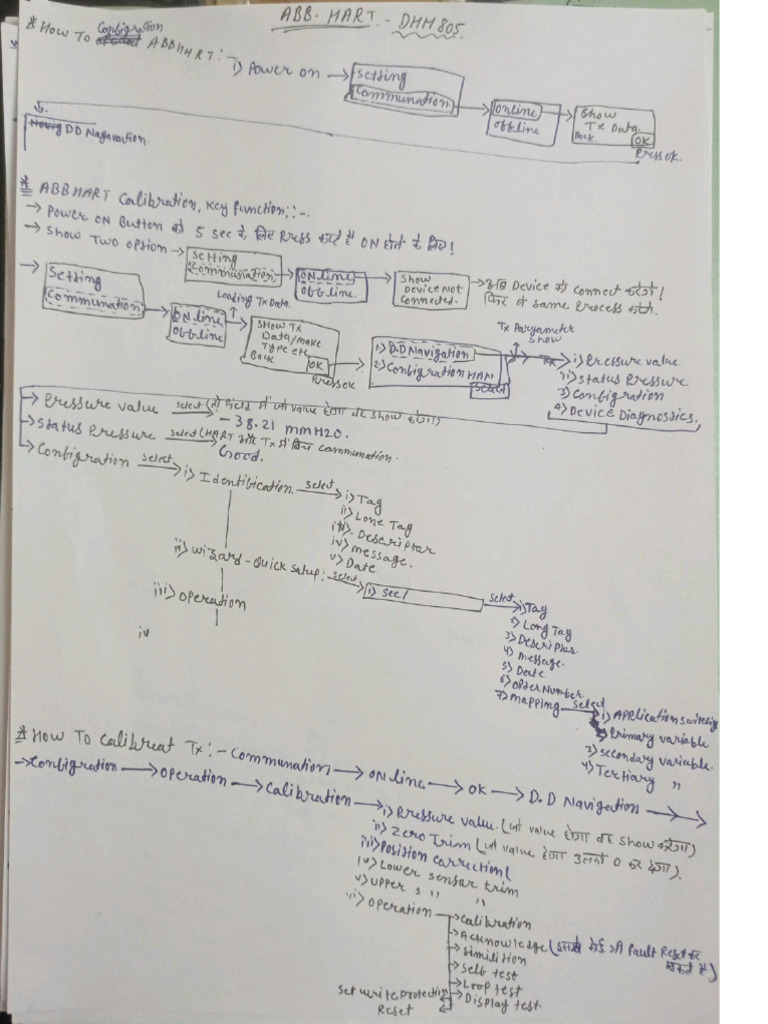 ABB. HART. - DHH805.
* HOW TO Configration ABBHART :-
i) Power on → Setting
Communation → online
offline → Show
Tx Data.
Back. OK
Press OK.
DD Nagavation.
* ABBHART Calibration, Key function; :-.
→ Power ON Button को 5 sec के लिए Press करते है ON होने के लिए!
→ Show Two option → Setting
Communation → ONline
offline. → Show
Device Not
Connected. → Device को connect करेगे!
फिर से same Process करेगे.
→ Setting
Communation → ONline
offline
Loading Tx Data.
Show Tx
Data/make
Type etc
Back OK
Press OK
1) D.D Navigation
2) Configration HAN
Select
Tx Paryameter
Show
i) Pressure value
ii) Status Pressure
3) Configration
4) Device Diagnossics.
→ Pressure value select → - 38.21 mmH2O.
→ Status Pressure select (HART और Tx में communation.
Good.
→ Configration select → i) Identification select → i) Tag
ii) Lone Tag
iii). Descriptar
iv) message.
v) Date
ii) Wizard - Quick Setup: select → i) see/ select → 1) Tag
2) Long Tag
3) Descriptar
4) message.
5) Date
6) Order Number
7) mapping select → 1) Application switcing
2) Primary variable
3) secondary variable.
4) Tertiary "
iii) Operation
iv
* HOW TO Calibreat Tx :- Communation → ON line. → OK → D.D Navigation →→
→ Configration → Operation → Calibration → i) Pressure value. (जो value होगा वह show करेगा)
ii) Zero Trim (जो value होगा उसको 0 कर देगा).
iii) Position correction (
iv) Lower sensar trim
v) upper s " "
operation → Calibration
→ Acknowledge ( Fault Reset कर सकते है)
→ Similition
→ Self test
→ Loop test
→ Display test.
Set write protection
Reset